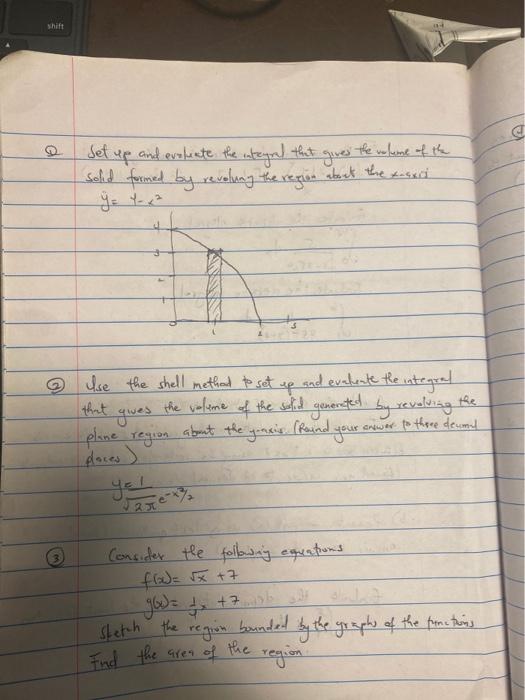 shift
① Set up and evaluate the integral that gives the volume of the
solid formed by revolving the region about the x-axis
y = 4-x²
4
3
2
1
0 1 2 3
② Use the shell method to set up and evaluate the integral
that gives the volume of the solid generated by revolving the
plane region about the y-axis. (Round your answer to three decimal
places)
y = 1/√2π e^-x²/2
③ Consider the following equations
f(x) = √x + 7
g(x) = 1/4 x + 7
Sketch the region bounded by the graphs of the functions
Find the area of the region.